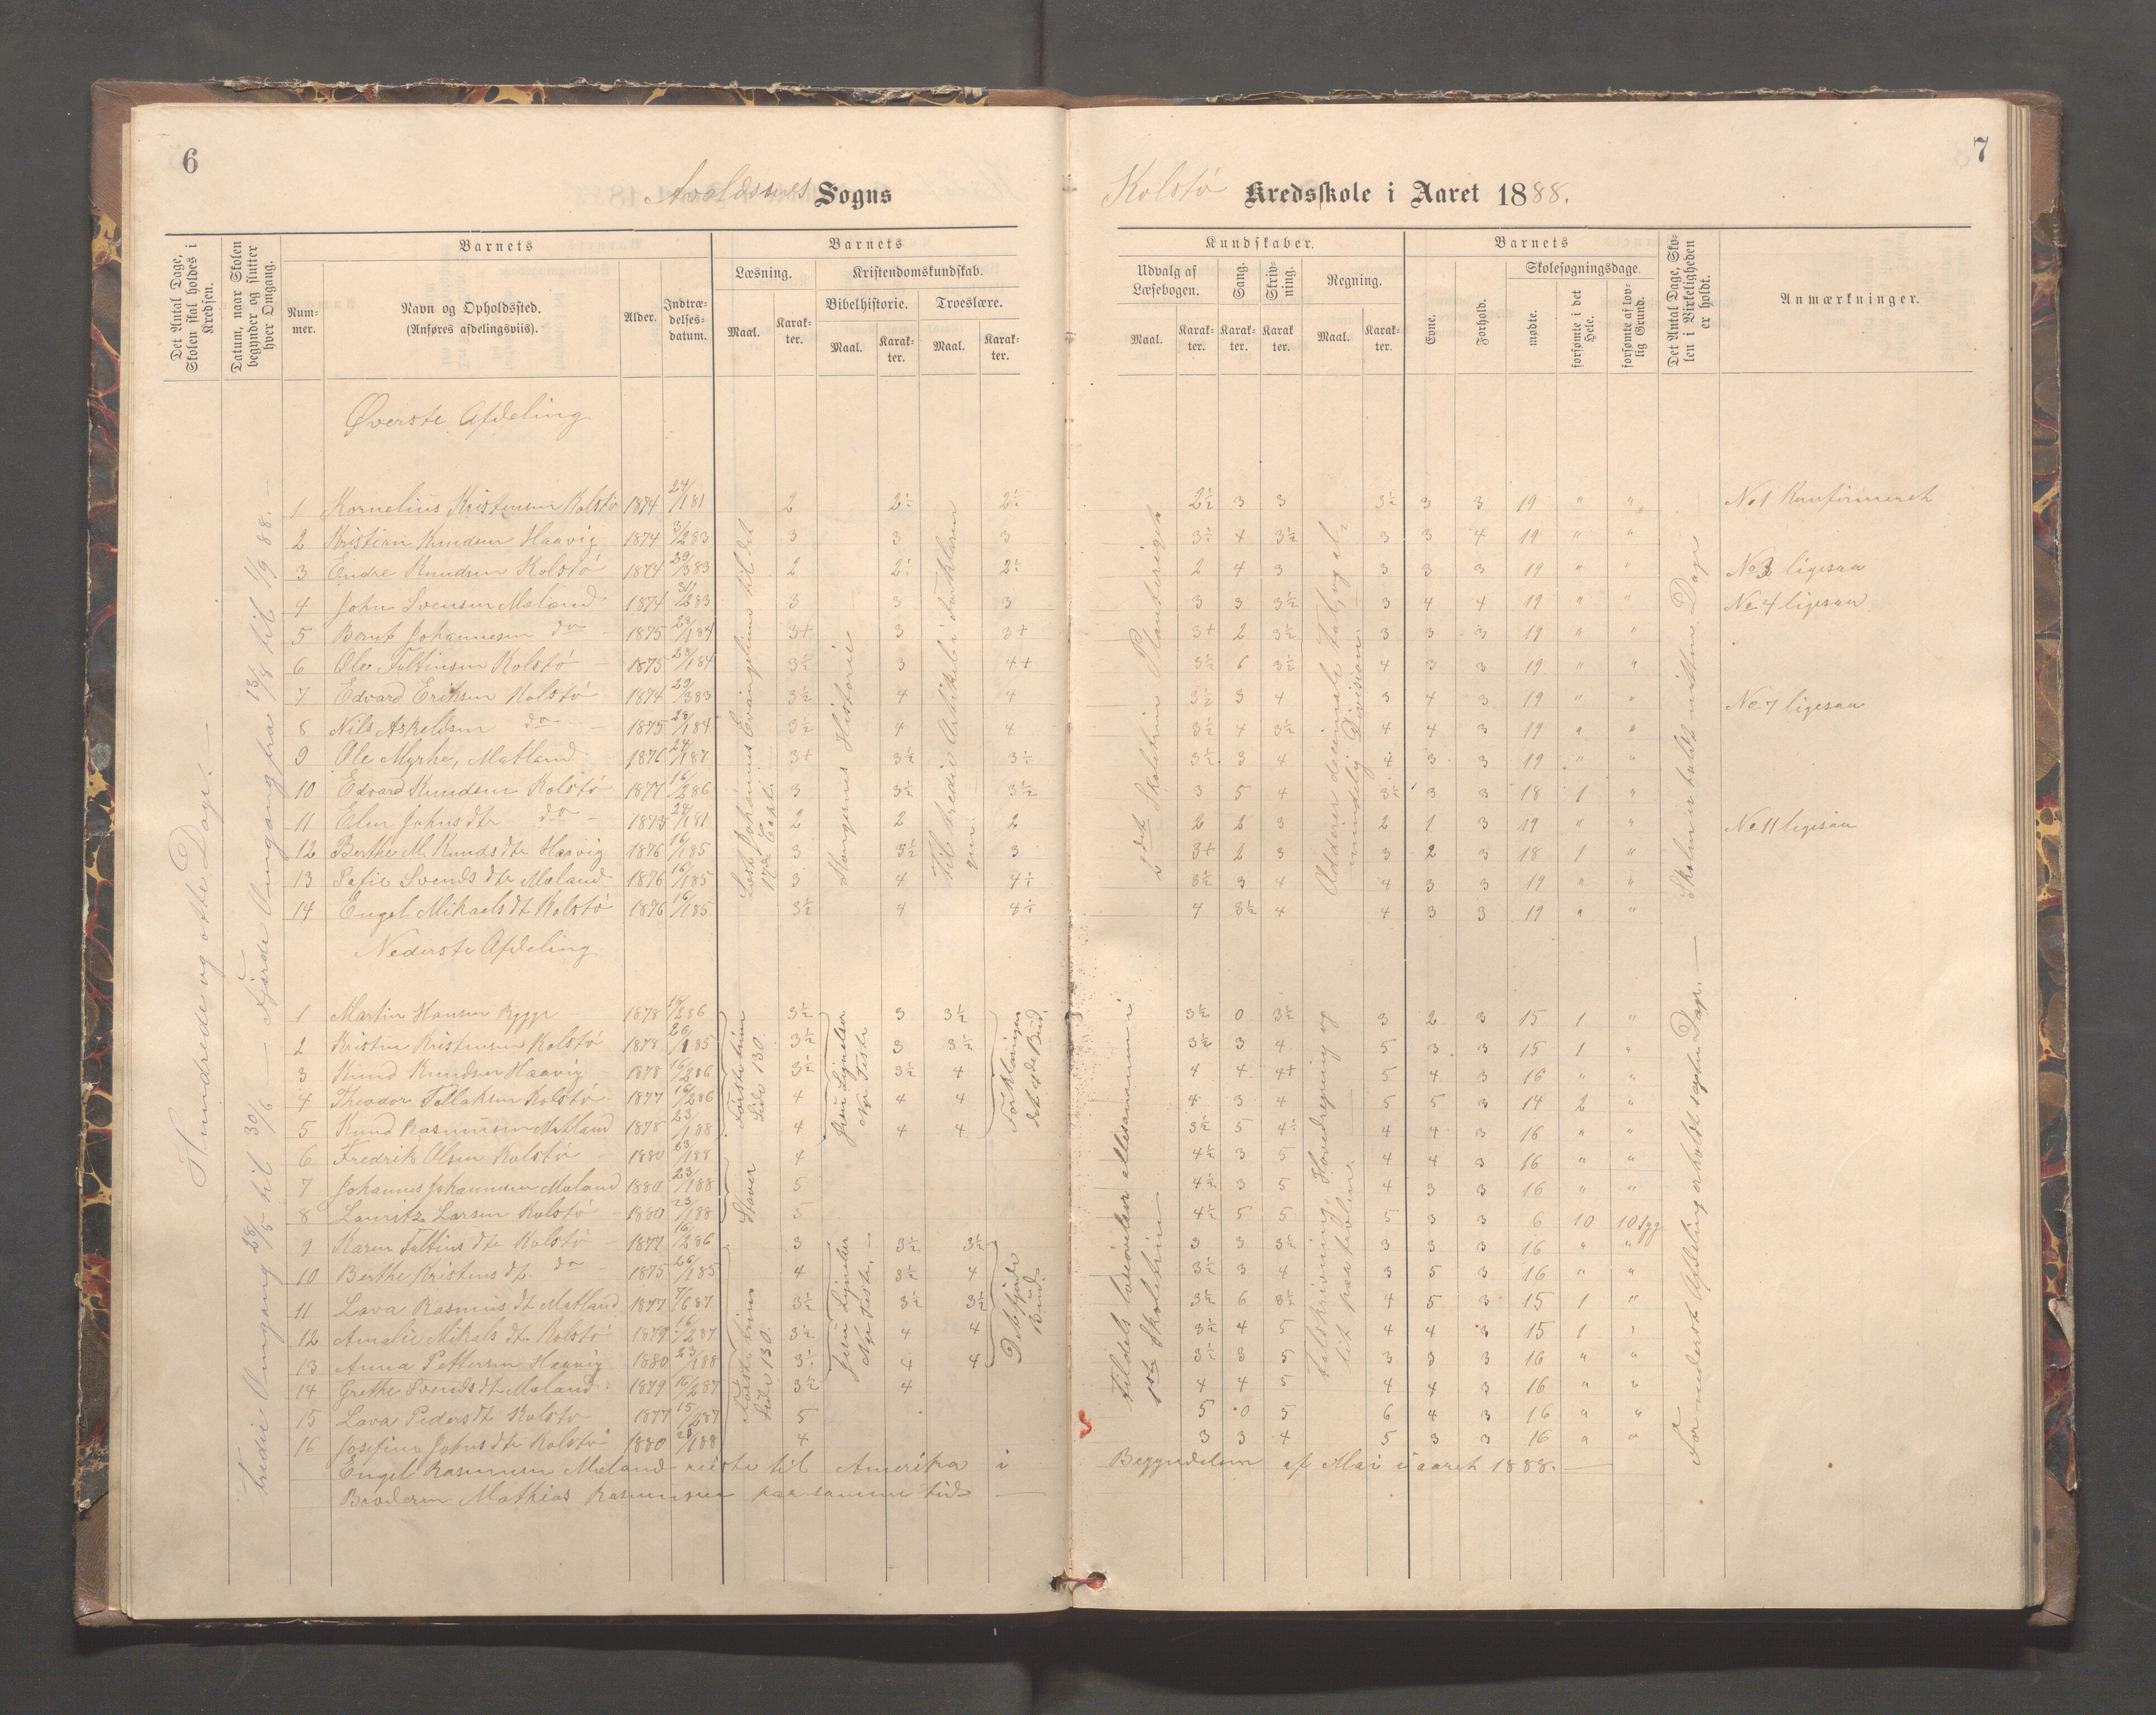 6
Avaldsnes Sogns
Det Antal Dage, Skolen skal holdes i Kredsen.
Datum, naar Skolen begynder og slutter hver Omgang.
Barnets
Nummer.
Navn og Opholdssted.
(Anføres afdelingsviis).
Alder.
Indtrædelsesdatum.
Barnets
Læsning.
Maal.
Karakter.
Kristendomskundskab.
Bibelhistorie.
Maal.
Karakter.
Troeslære.
Maal.
Karakter.
Hundrede og otte Dage. —
Tredie Omgang 28/5 til 30/6 — Fjerde Omgang fra 13/8 til 1/9 88. —
Øverste Afdeling
1 Kornelius Kristensen Kolstø 1874 24/1 81 2 2÷ 2÷
2 Kristian Knudsen Haavig 1874 3/2 83 3 3 3
3 Endre Knudsen Kolstø 1874 29/3 83 2 2÷ 2÷
4 John Svensen Mæland 1874 3/2 83 3 3 3
5 Berent Johannesen do 1875 28/1 84 3+ 3 3+
6 Ole Faltinsen Kolstø 1875 28/1 84 3½ 3 4+
7 Edvard Eriksen Kolstø 1874 29/3 83 3½ 4 4
8 Nils Askeldsen do 1875 28/1 84 3½ 4 4
9 Ole Myrhe, Matland 1876 24/1 87 3+ 3½ 3÷
10 Edvard Knudsen Kolstø 1877 16/2 86 3 3÷ 3½
11 Elen Johnsdtr do 1873 24/1 81 2 2 2
12 Berthe M. Knudsdtr Haavig 1876 16/1 85 3 3½ 3
13 Pafie Svendsdtr Mæland 1876 16/1 85 3 4 4÷
14 Engel Mikaelsdt Kolstø 1876 16/1 85 3½ 4 4÷
Læst Johannes Evangelium til det 17de Capt.
Vangsnes Historie
Til tredie Artikel i Forklaringen.
Nederste Afdeling
1 Martin Hansen Rygge 1878 14/2 86 3½ 3 3½
2 Kristen Kristensen Kolstø 1878 26/1 85 3÷ 3 3½
3 Knud Knudsen Haavig 1878 16/2 86 3÷ 3½ 4
4 Theodor Tollaksen Kolstø 1877 16/2 86 4 4 4
5 Knud Rasmussen Matland 1878 23/1 88 4 4 4
6 Fredrik Olsen Kolstø 1880 23/1 88 4
7 Johannes Johannesen Mæland 1880 23/1 88 5
8 Lauritz Larsen Kolstø 1880 23/1 88 5
9 Karen Faltinsdtr Kolstø 1877 16/2 86 3 3½ 3½
10 Berthe Kristensdt. do 1875 26/1 85 4 3½ 4
11 Lava Rasmusdt Matland 1877 7/6 87 3½ 3½ 3½
12 Amalie Mikalsdt. Kolstø 1879 16/2 87 3½ 4 4
13 Anna Pettersen Haavig 1880 23/1 88 3÷ 4 4
14 Grethe Svendsdt Mæland 1879 16/2 87 3½ 4
15 Lava Pedersdt Kolstø 1877 15/2 87 5
16 Josefine Johnsdtr Kolstø 1880 28/1 88 4
Første trin Side 130
Jesu Lignelser Nye Testr.
Forklaringen det 4de Bud.
Staver
Første trin Side 130
Jesu Lignelser Nye Testr. —
Det fjerde Bud.
Engel Rasmussen Mæland reiste til Amerika i
Broderen Mathias Rasmussen paa samme tid —
7
Kolstø Kredsskole i Aaret 1888.
Kundskaber.
Udvalg af Læsebogen.
Maal.
Karakter.
Sang.
Karakter.
Skrivning.
Karakter.
Regning.
Maal.
Karakter.
Barnets
Evne.
Forhold.
Skolesøgningsdage.
mødte.
forsømte i det Hele.
forsømte af lovlig Grund.
Det Antal Dage, Skolen i Virkeligheden er holdt.
Anmærkninger.
2½ 3 3 3½ 3 3 19 " " No 1 Konfirmeret
3÷ 4 3½ 3 3 4 19 " "
2 4 3 3 3 3 19 " " No 3 ligesaa
3 3 3½ 3 4 4 19 " " No 4 ligesaa
3+ 2 3½ 3 3 3 19 " "
3½ 6 3½ 4 3 3 19 " "
3½ 3 4 3 4 3 19 " " No 7 ligesaa
3½ 4 3½ 4 4 3 19 " "
3½ 3 4 4 3 3 19 " "
3 5 4 3÷ 3 3 18 1 "
2 2 3 2 1 3 19 " " No 11 ligesaa
3+ 2 3 3 2 3 18 1 "
3½ 3 4 4 3 3 19 " "
4 3½ 4 4 3 3 19 " "
2det Skoletrin
Adderer decimale tal, og
mundelig Division.
Skolen er holdt nitten Dage
3½ 0 3½ 3 2 3 15 1 "
3½ 3 4 5 3 3 15 1 "
4 4 4+ 5 4 3 16 " "
4 3 4 5 5 3 14 2 "
3½ 5 4÷ 4 4 3 16 " "
4½ 3 5 4 4 3 16 " "
4½ 3 5 4 3 3 16 " "
4½ 5 5 5 3 3 6 10 10 syg
3 3 3½ 3 3 3 16 " "
3½ 3 4 3 5 3 16 " "
3½ 6 3½ 4 5 3 15 1 "
3½ 4 5 4 4 3 15 1 "
3÷ 3 5 3 3 3 16 " "
4 4 5 4 4 3 16 " "
5 0 5 6 4 3 16 " "
3 3 4 5 3 3 16 " "
tildels læseøvelser allesammen i 1ste Skoletrin
Talskrivning, Hovedregning og lidt paa tavlen.
For nederst Afdeling er holdt sexten Dage. —
Begyndelsen af Mai i aaret 1888. —